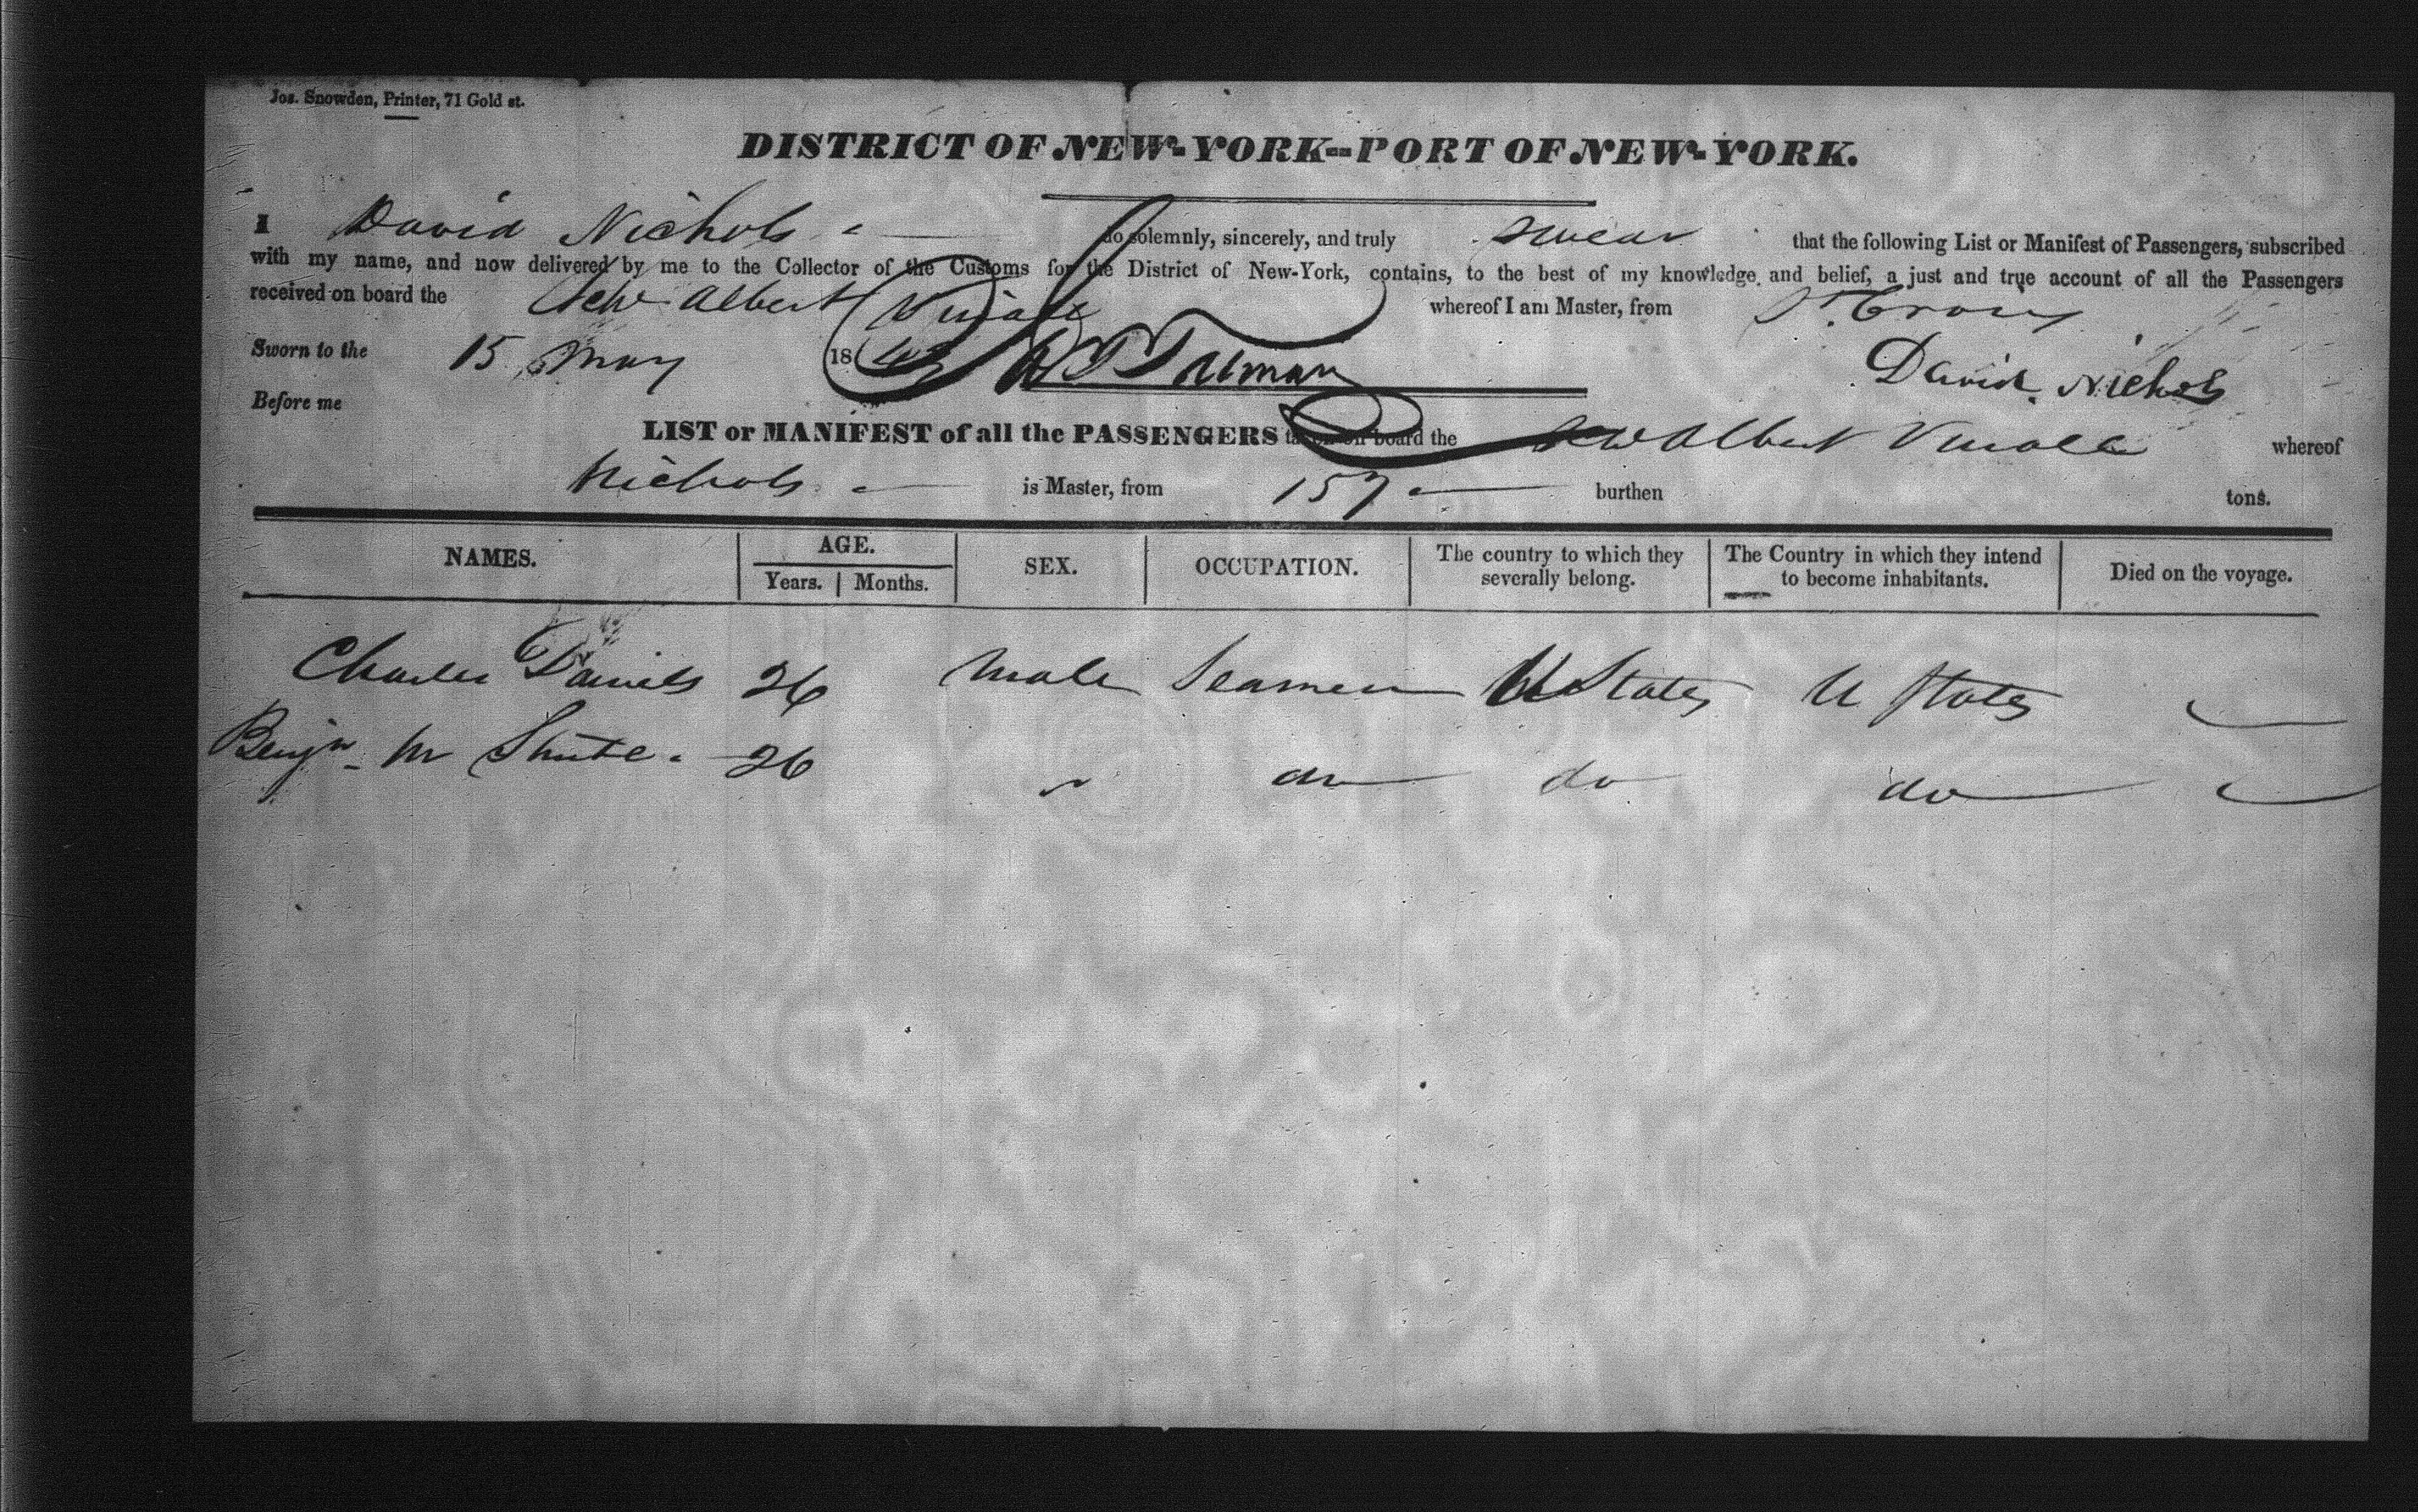 Jos. Snowden, Printer, 71 Gold st.
DISTRICT OF NEW-YORK--PORT OF NEW-YORK.
I David Nichols do solemnly, sincerely, and truly swear that the following List or Manifest of Passengers, subscribed
with my name, and now delivered by me to the Collector of the Customs for the District of New-York, contains, to the best of my knowledge and belief, a just and true account of all the Passengers
received on board the Schr Albert Vinall whereof I am Master, from St. Croix
Sworn to the 15 May 1843 David Nichols
Before me
LIST or MANIFEST of all the PASSENGERS taken on board the Schr Albert Vinall whereof
Nichols is Master, from 157 burthen tons.
NAMES. AGE. SEX. OCCUPATION. The country to which they severally belong. The Country in which they intend to become inhabitants. Died on the voyage.
Years. Months.
Charles Daniels 26 Male Seamen U States U States
Benjn M Shute 26 " do do do